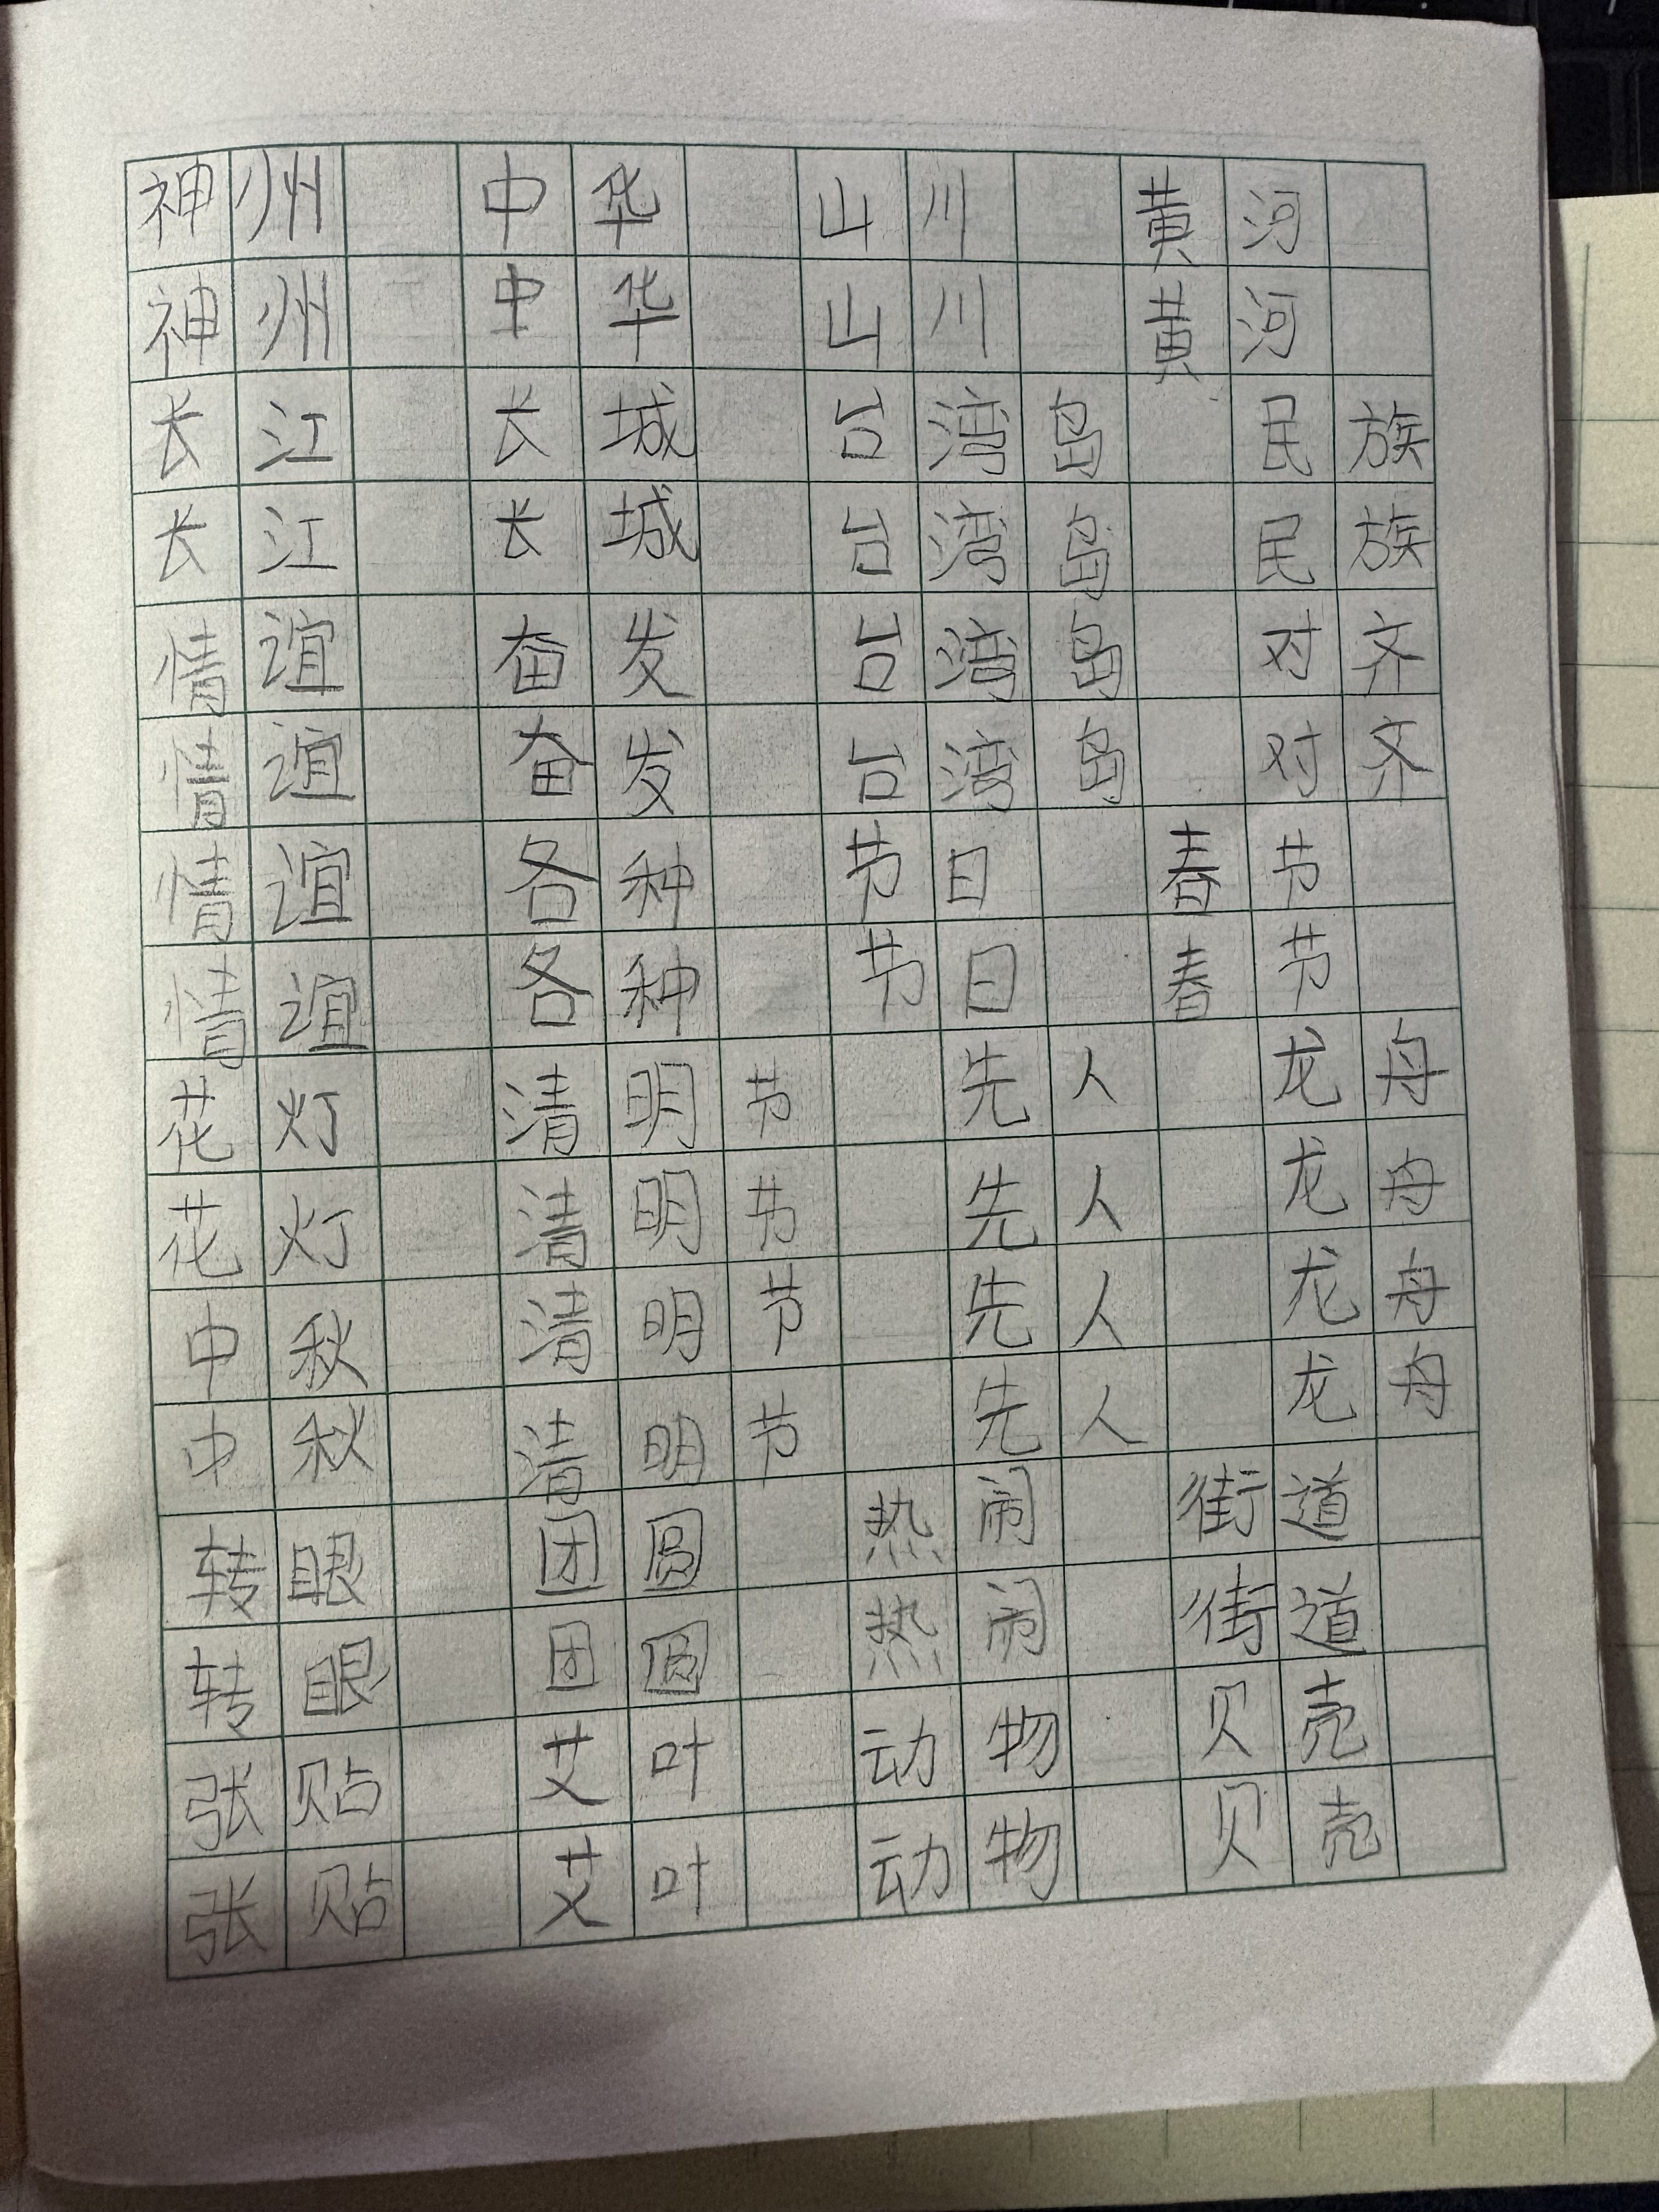 神州 中华 山川 黄河
神州 中华 山川 黄河
长江 长城 台湾岛 民族
长江 长城 台湾岛 民族
情谊 奋发 台湾岛 对齐
情谊 奋发 台湾岛 对齐
情谊 各种 节日 春节
情谊 各种 节日 春节
花灯 清明节 先人 龙舟
花灯 清明节 先人 龙舟
中秋 清明节 先人 龙舟
中秋 清明节 先人 龙舟
转眼 团圆 热闹 街道
转眼 团圆 热闹 街道
张贴 艾叶 动物 贝壳
张贴 艾叶 动物 贝壳